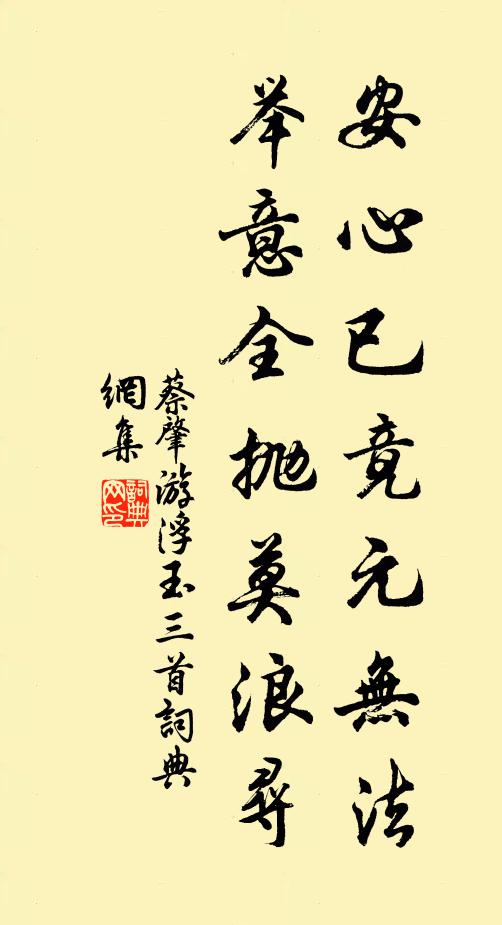 安心已竟元無法
举意全抛莫浪尋
蔡肇游浮玉三首詞典
網集
詞典
网印